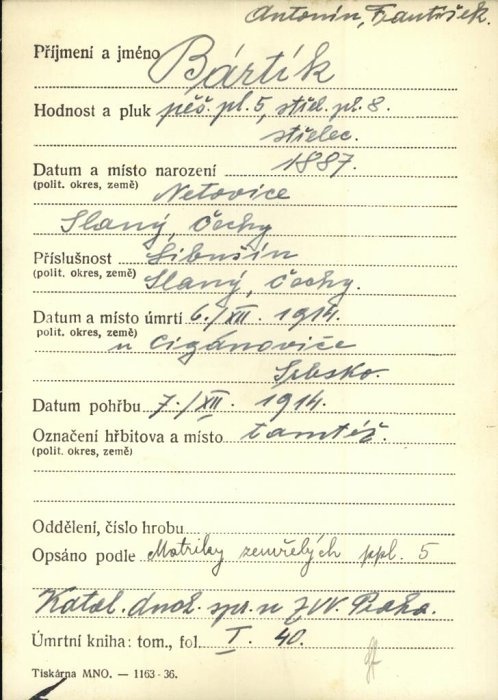 Antonín, František.
Příjmení a jméno Bártík
Hodnost a pluk pěš. pl. 5, střel. pl. 8.
střelec.
Datum a místo narození 1887.
(polit. okres, země) Netovice
Slaný, Čechy
Příslušnost Libušín
(polit. okres, země) Slaný, Čechy.
Datum a místo úmrtí 6./XII. 1914.
polit. okres, země)
u Cigánoviče
Srbsko.
Datum pohřbu 7./XII. 1914.
Označení hřbitova a místo tamtéž.
(polit. okres, země)
Oddělení, číslo hrobu
Opsáno podle Matriky zemřelých ppl. 5
Katol. duch. spr. u ZVV. Praha.
Úmrtní kniha: tom., fol. I. 40.
Tiskárna MNO. — 1163-36.